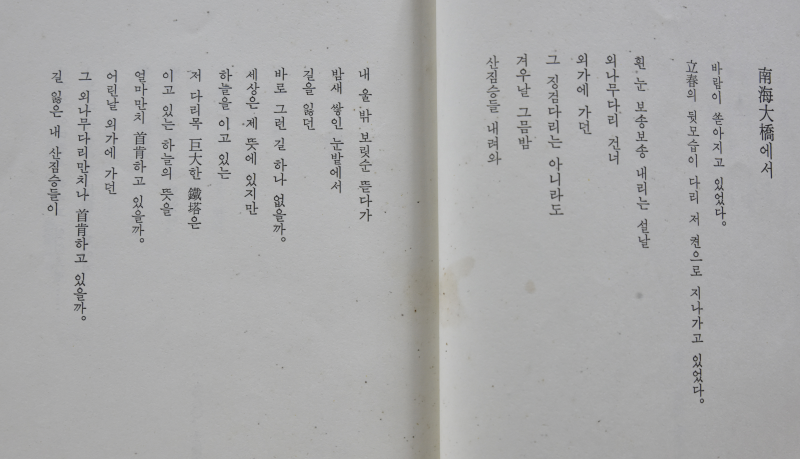 南海大橋에서
바람이 쏟아지고 있었다.
立春의 뒷모습이 다리 저 켠으로 지나가고 있었다.
흰 눈 보송보송 내리는 설날
외나무다리 건너
외가에 가던
그 징검다리는 아니라도
겨우날 그믐밤
산짐승들 내려와
내 울 밖 보릿순 뜯다가
밤새 쌓인 눈밭에서
길을 잃던
바로 그런 길 하나 없을까.
세상은 제 뜻에 있지만
하늘을 이고 있는
저 다리목 巨大한 鐵塔은
이고 있는 하늘의 뜻을
얼마만치 首肯하고 있을까.
어린날 외가에 가던
그 외나무다리만치나 首肯하고 있을까.
길 잃은 내 산짐승들이